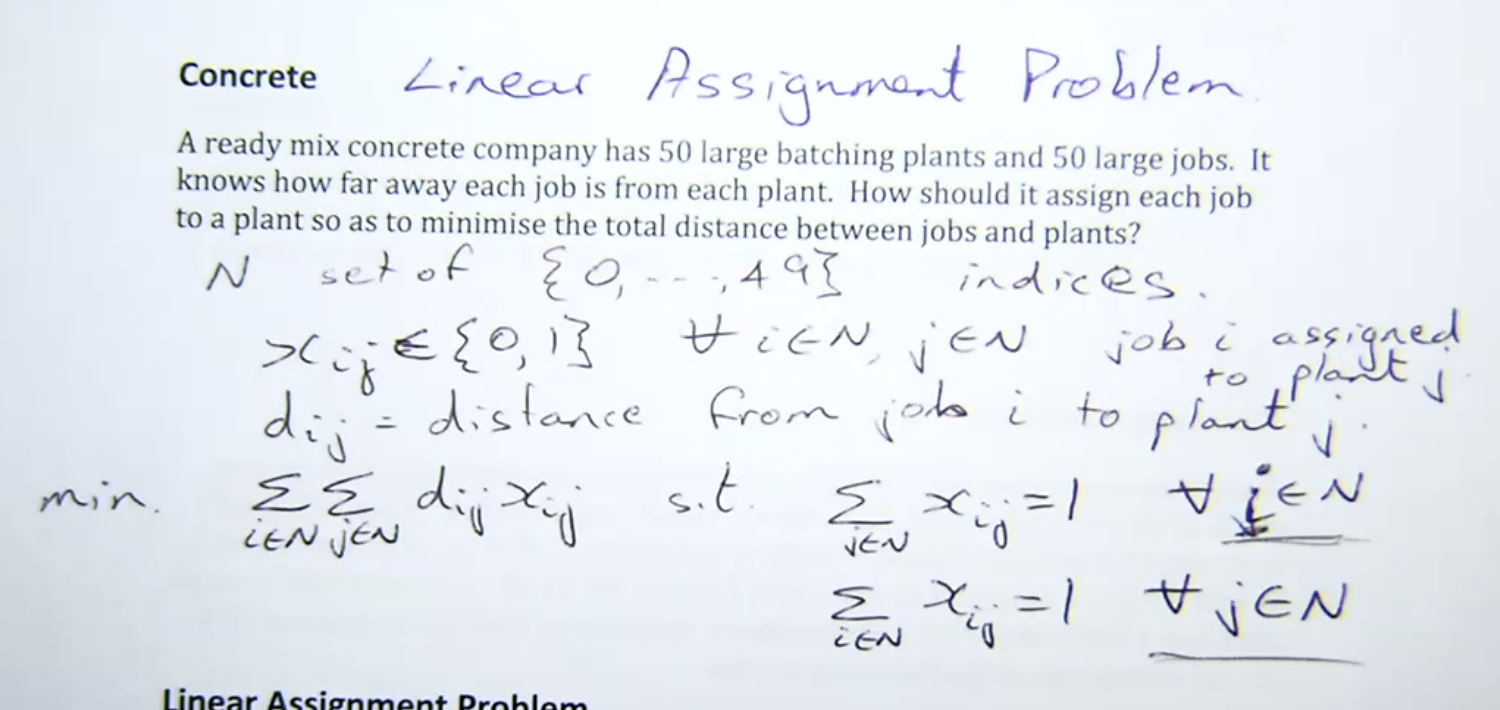 Concrete Linear Assignment Problem.
A ready mix concrete company has 50 large batching plants and 50 large jobs. It
knows how far away each job is from each plant. How should it assign each job
to a plant so as to minimise the total distance between jobs and plants?
N set of {0, ---, 49} indices.
xij ∈ {0, 1} ∀ i∈N, j∈N job i assigned
to plant j.
dij = distance from job i to plant j.
min. Σi∈N Σj∈N dij xij s.t. Σj∈N xij = 1 ∀ i∈N
Σi∈N xij = 1 ∀ j∈N
Linear Assignment Problem